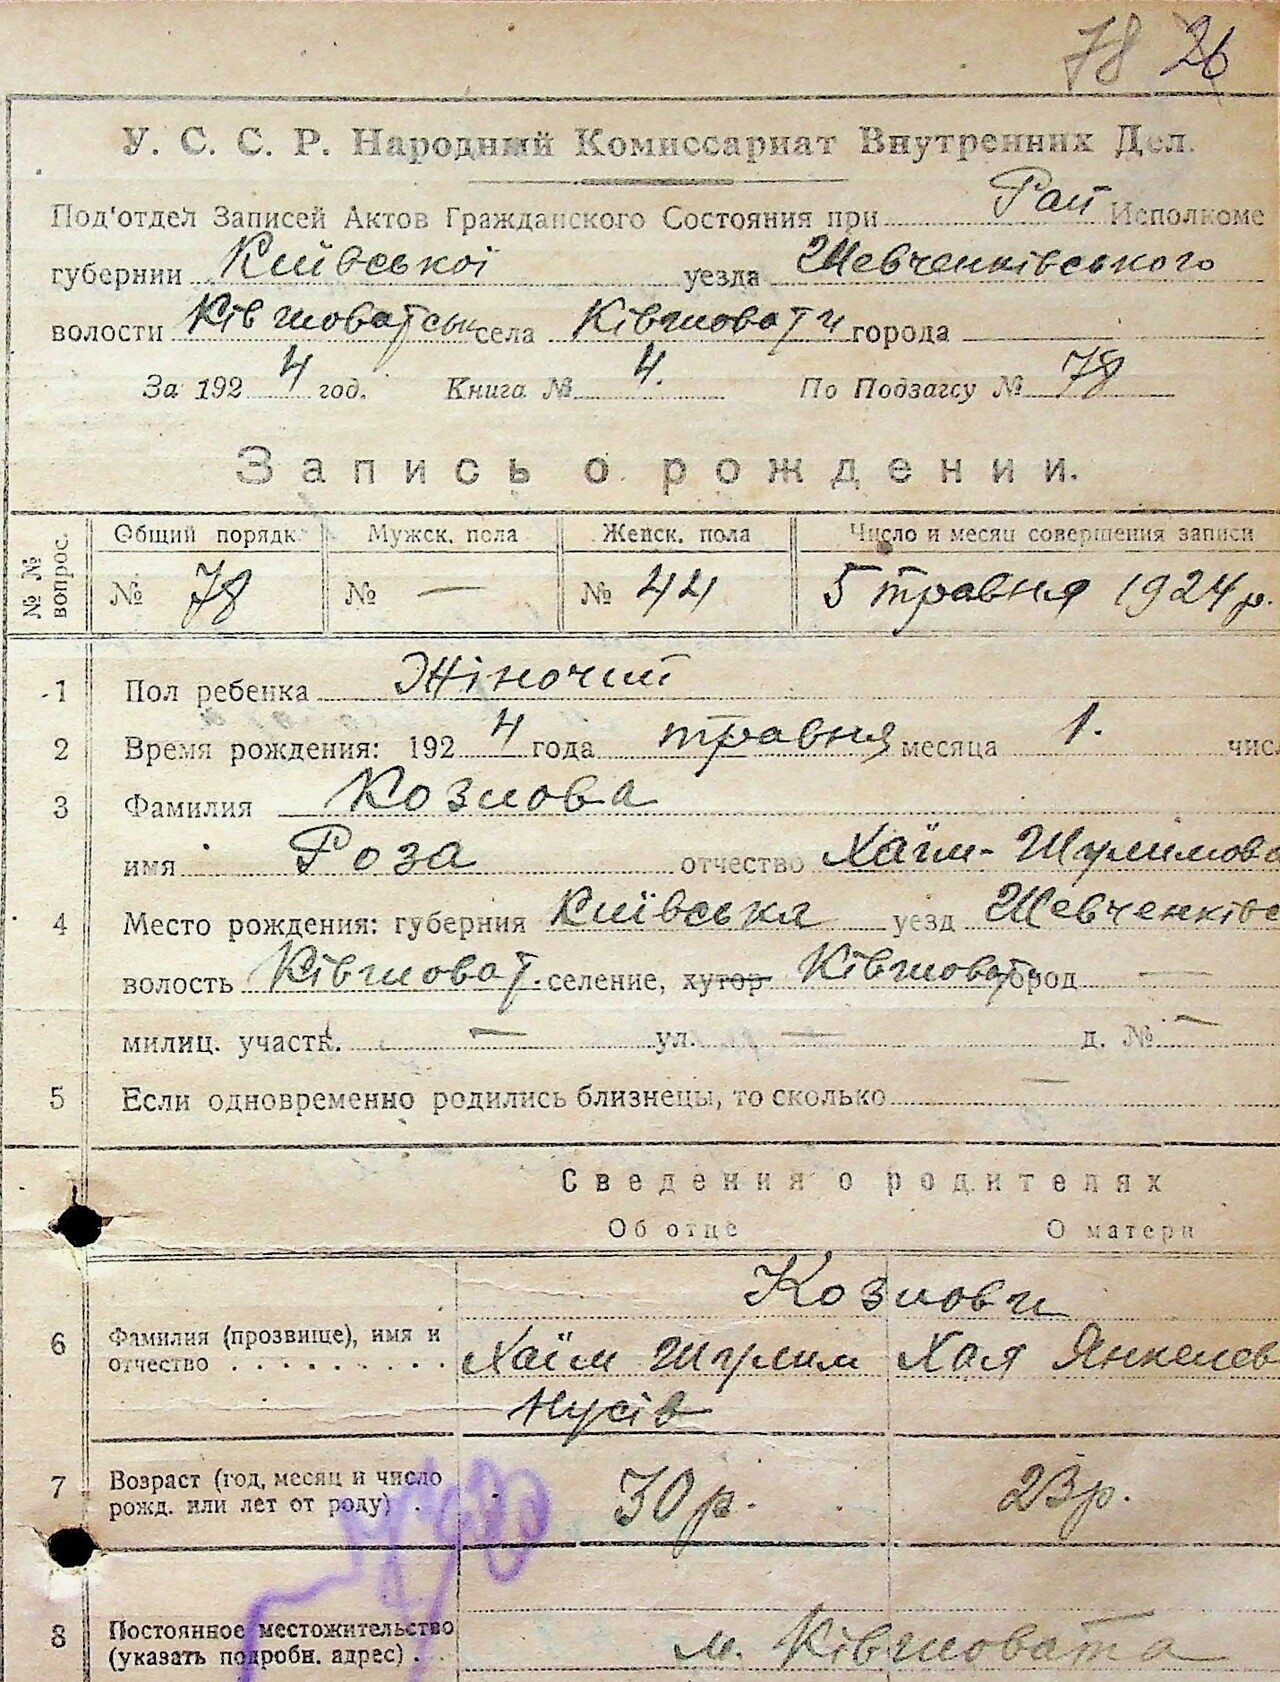 78 26
У. С. С. Р. Народний Комиссариат Внутренних Дел.
Под'отдел Записей Актов Гражданского Состояния при Рай Исполкоме
губернии Київської уезда Шевченківського
волости Ківшоватськ села Ківшовати города
За 1924 год. Книга № 4. По Подзагсу № 78
Запись о рождении.
№ № вопрос. Общий порядк. Мужск. пола Женск. пола Число и месяц совершения записи
№ 78 № — № 44 5 травня 1924 р.
1 Пол ребенка Жіночий
2 Время рождения: 1924 года травня месяца 1. числ
3 Фамилия Козлова
имя Роза отчество Хаїм-Шулимова
4 Место рождения: губерния Київська уезд Шевченківс
волость Ківшоват. селение, хутор Ківшоват город —
милиц. участк. — ул. — д. № —
5 Если одновременно родились близнецы, то сколько —
Сведения о родителях
Об отце О матери
Козлови
6 Фамилия (прозвище), имя и
отчество . . . . . . . . . Хаїм Шулим Хая Янкелев
Нусів
7 Возраст (год, месяц и число
рожд. или лет от роду) . 30 р. 23 р.
8 Постоянное местожительство
(указать подробн. адрес) . . м. Ківшовата